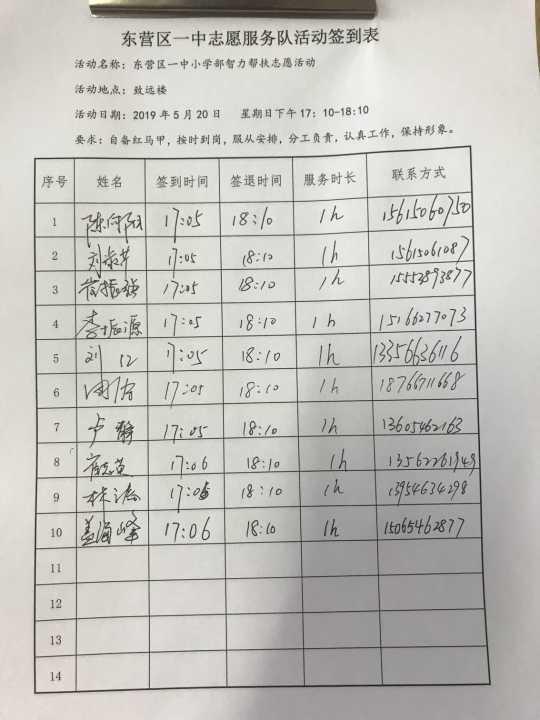 东营区一中志愿服务队活动签到表
活动名称：东营区一中小学部智力帮扶志愿活动
活动地点：致远楼
活动日期：2019年5月20日 星期日下午17：10-18:10
要求：自备红马甲，按时到岗，服从安排，分工负责，认真工作，保持形象。
序号 姓名 签到时间 签退时间 服务时长 联系方式
1 陈向阳 17:05 18:10 1h 15615060750
2 17:05 18:10 1h 15615061087
3 17:05 18:10 1h
4 李振源 17:05 18:10 1h 15166277073
5 刘 17:05 18:10 1h 13356636116
6 17:05 18:10 1h 18766711668
7 卢静 17:05 18:10 1h 13605462163
8 17:06 18:10 1h 13562261949
9 林涛 17:05 18:10 1h 13954634298
10 盖海峰 17:06 18:10 1h 15065462877
11
12
13
14